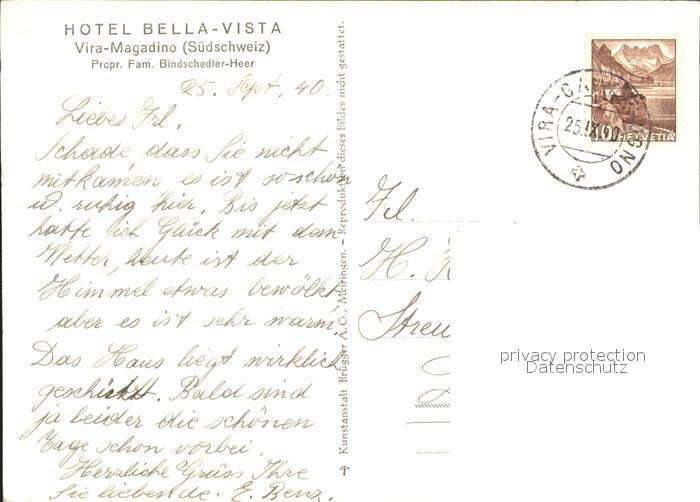 HOTEL BELLA-VISTA
Vira-Magadino (Südschweiz)
Propr. Fam. Bindschedler-Heer
25. Sept. 40.
Liebes Frl.
Schade dass Sie nicht
mitkamen es ist so schön
u. ruhig hier. Bis jetzt
hatte ich Glück mit dem
Wetter, heute ist der
Himmel etwas bewölkt
aber es ist sehr warm.
Das Haus liegt wirklich
geschützt. Bald sind
ja leider die schönen
Tage schon vorbei.
Herzliche Grüss Ihre
Sie liebende. E. Benz.
Kunstanstalt Brügger A. G., Meiringen. – Reproduktion dieses Bildes nicht gestattet.
HELVETIA
25.IX.40
Frl.
H.
privacy protection
Datenschutz